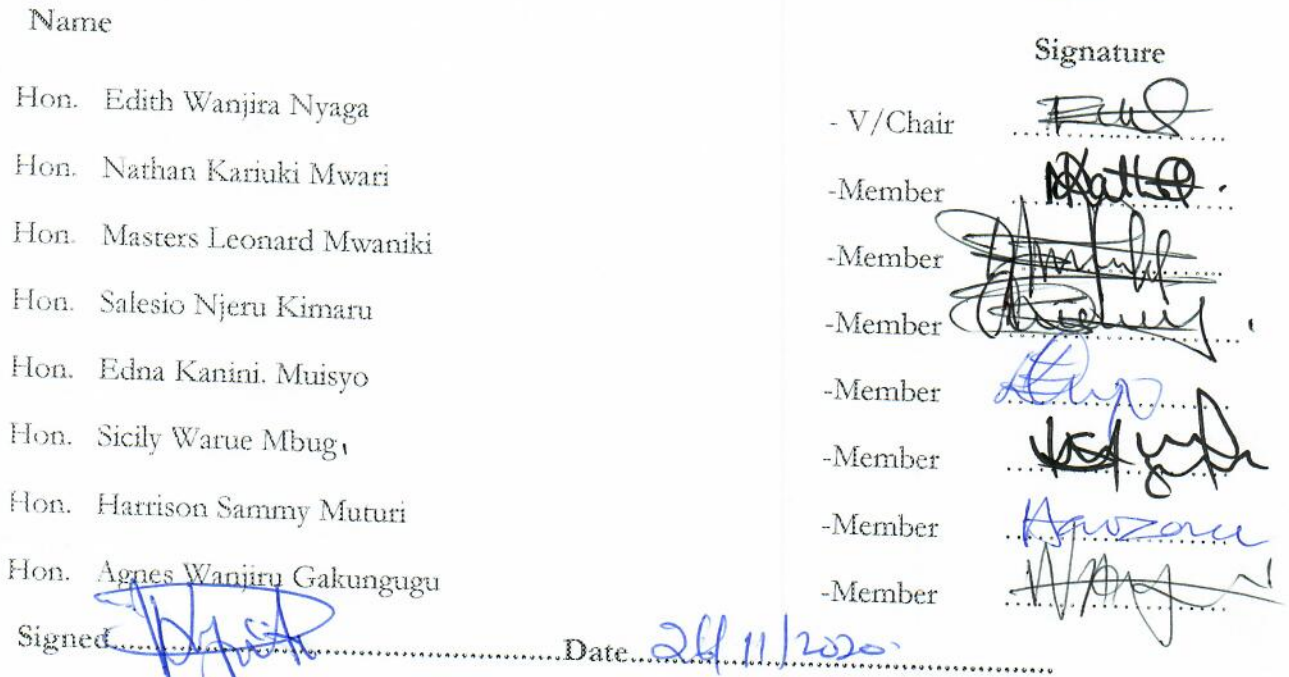 Name
Signature
Hon. Edith Wanjira Nyaga - V/Chair
Hon. Nathan Kariuki Mwari -Member
Hon. Masters Leonard Mwaniki -Member
Hon. Salesio Njeru Kimaru -Member
Hon. Edna Kanini. Muisyo -Member
Hon. Sicily Warue Mbug -Member
Hon. Harrison Sammy Muturi -Member
Hon. Agnes Wanjiru Gakungugu -Member
Signed Date 26/11/2020